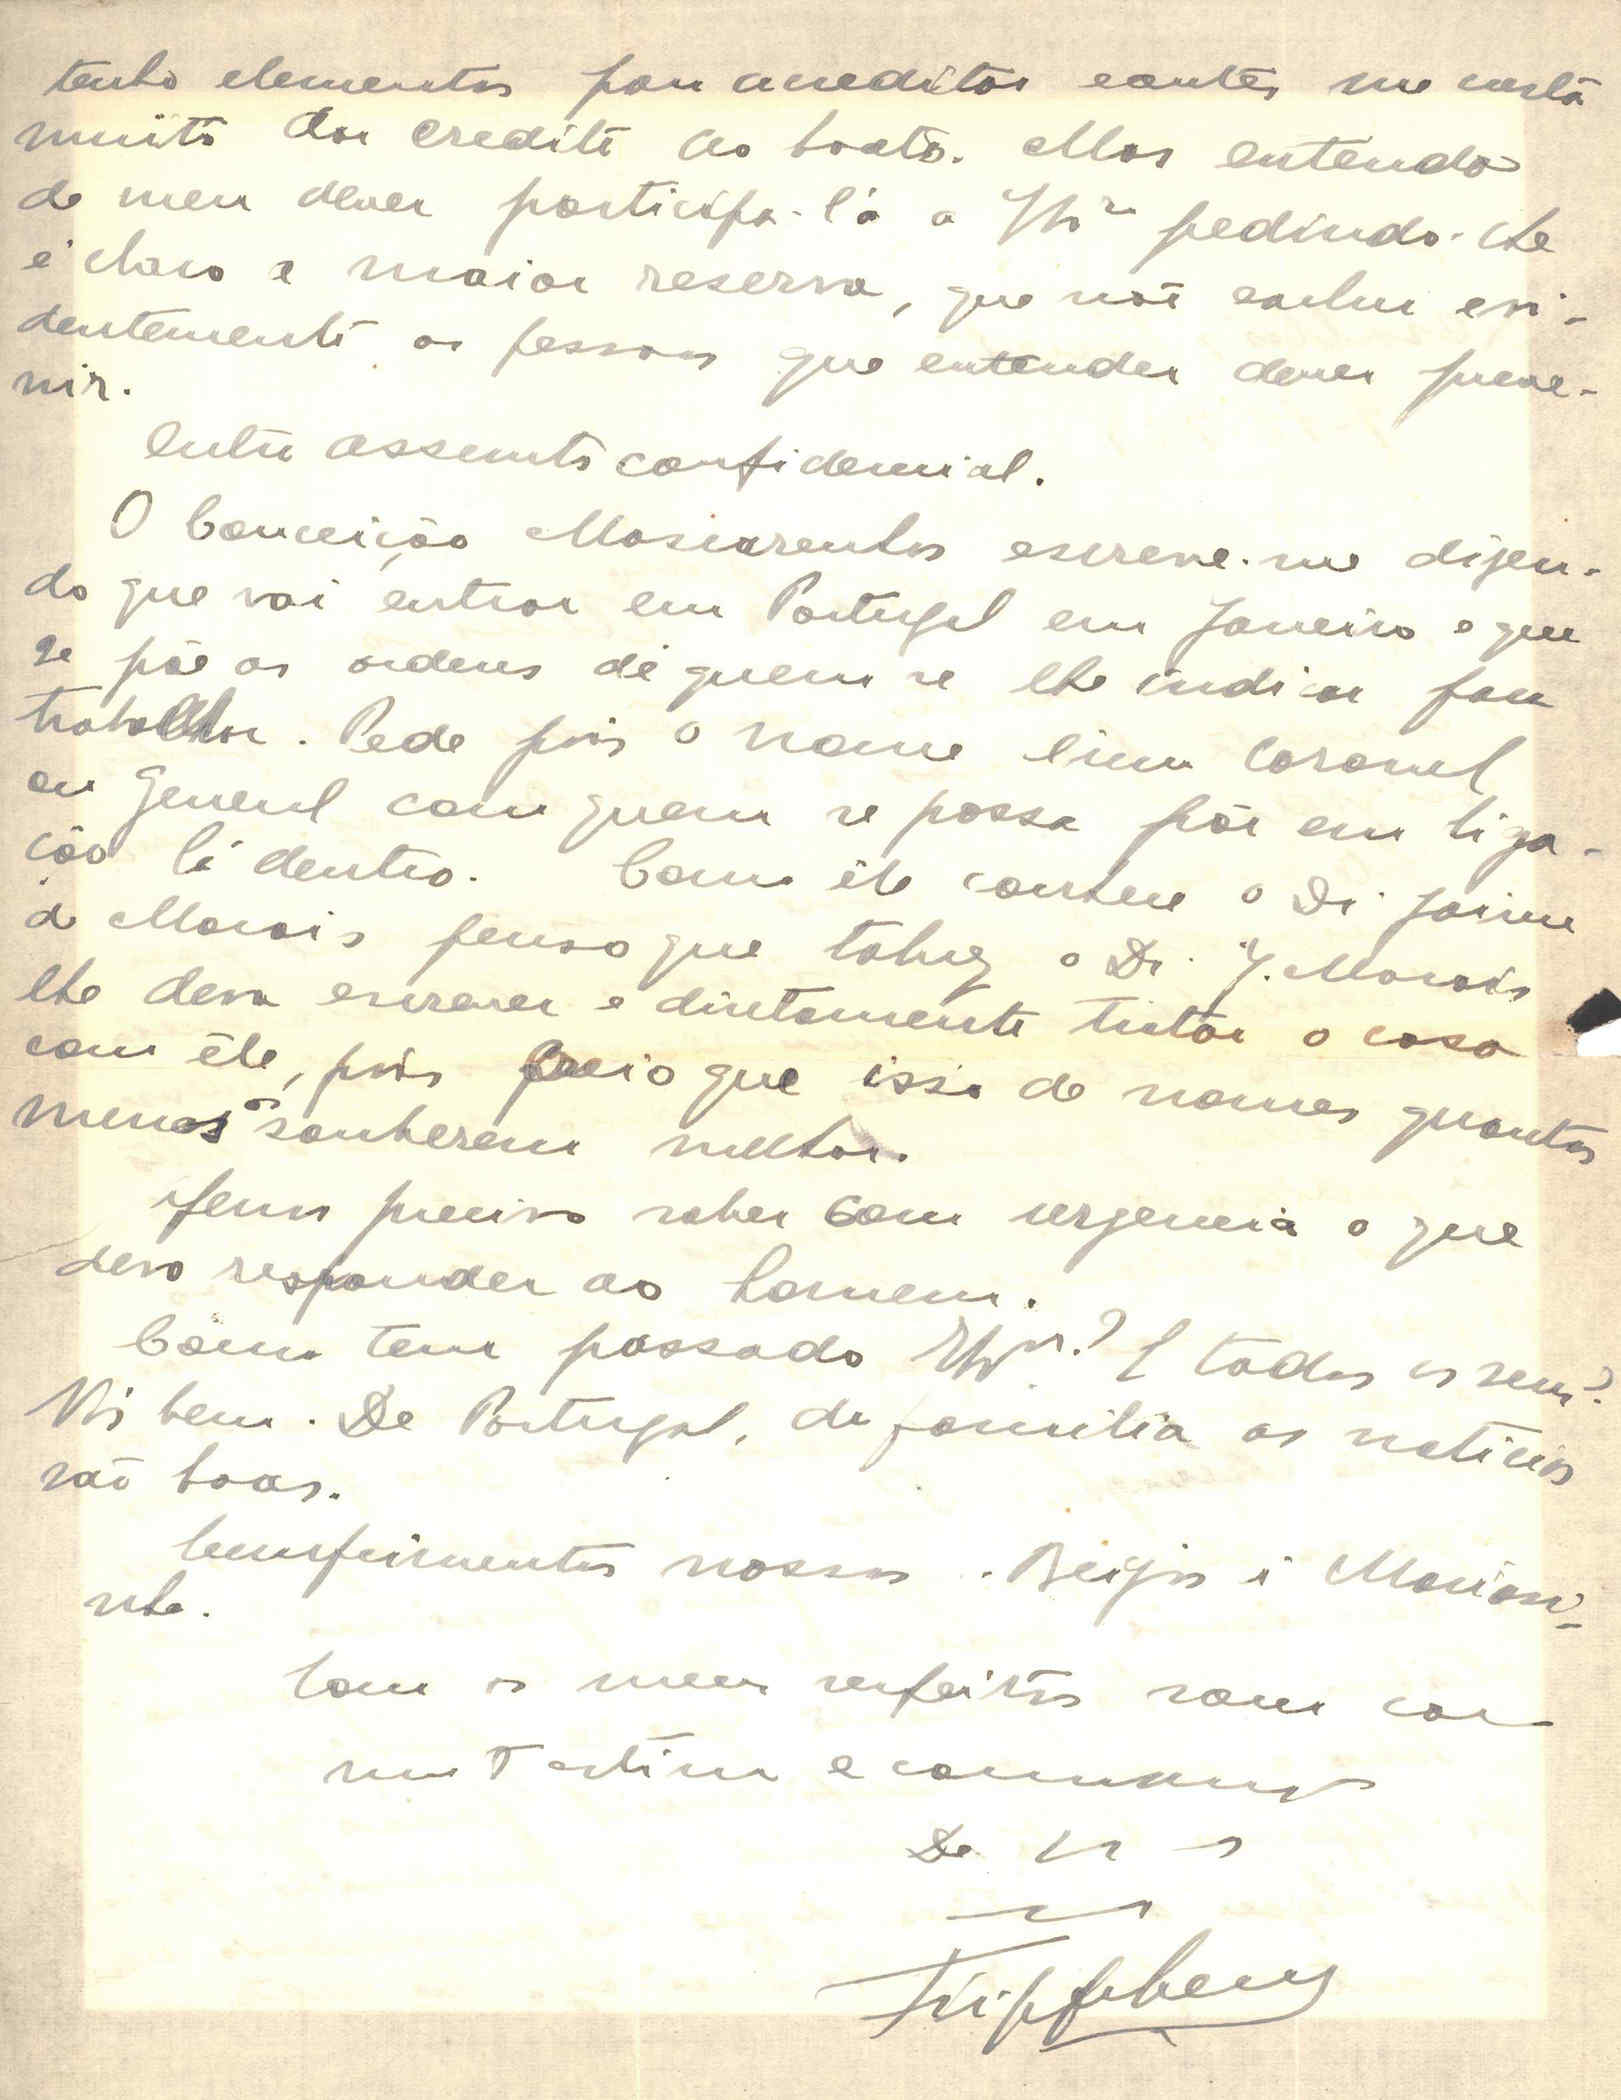 tenho elementos para acreditar e antes me custa
muito dar credito ao boato. Mas entendo
de meu dever participa-lo a pedindo-lhe
é claro a maior reserva, que não exclui evi-
dentemente as pessoas que entender dever preve-
nir.
Outro assunto confidencial.
O Conceição Mascarenhas escreve-me dizen-
do que vai entrar em Portugal em Janeiro e que
se põe as ordens de quem se lhe indicar para
trabalhar. Pede pois o nome dum coronel
ou general com quem se possa pôr em liga-
ção lá dentro. Como êle conhece o Dr. Jaime
de Morais penso que talvez o Dr. J. Morais
lhe deva escrever e diretamente tratar o caso
com êle, pois creio que isso de nomes quantos
menos os souberem melhor.
Penso preciso saber com urgencia o que
devo responder ao homem.
Como tem passado E todos os seus?
Nós bem. De Portugal, da familia as noticias
são boas.
Cumprimentos nossos. Beijos á Mariani-
nha.
Com os meus respeitos sou com
muita estima e
De